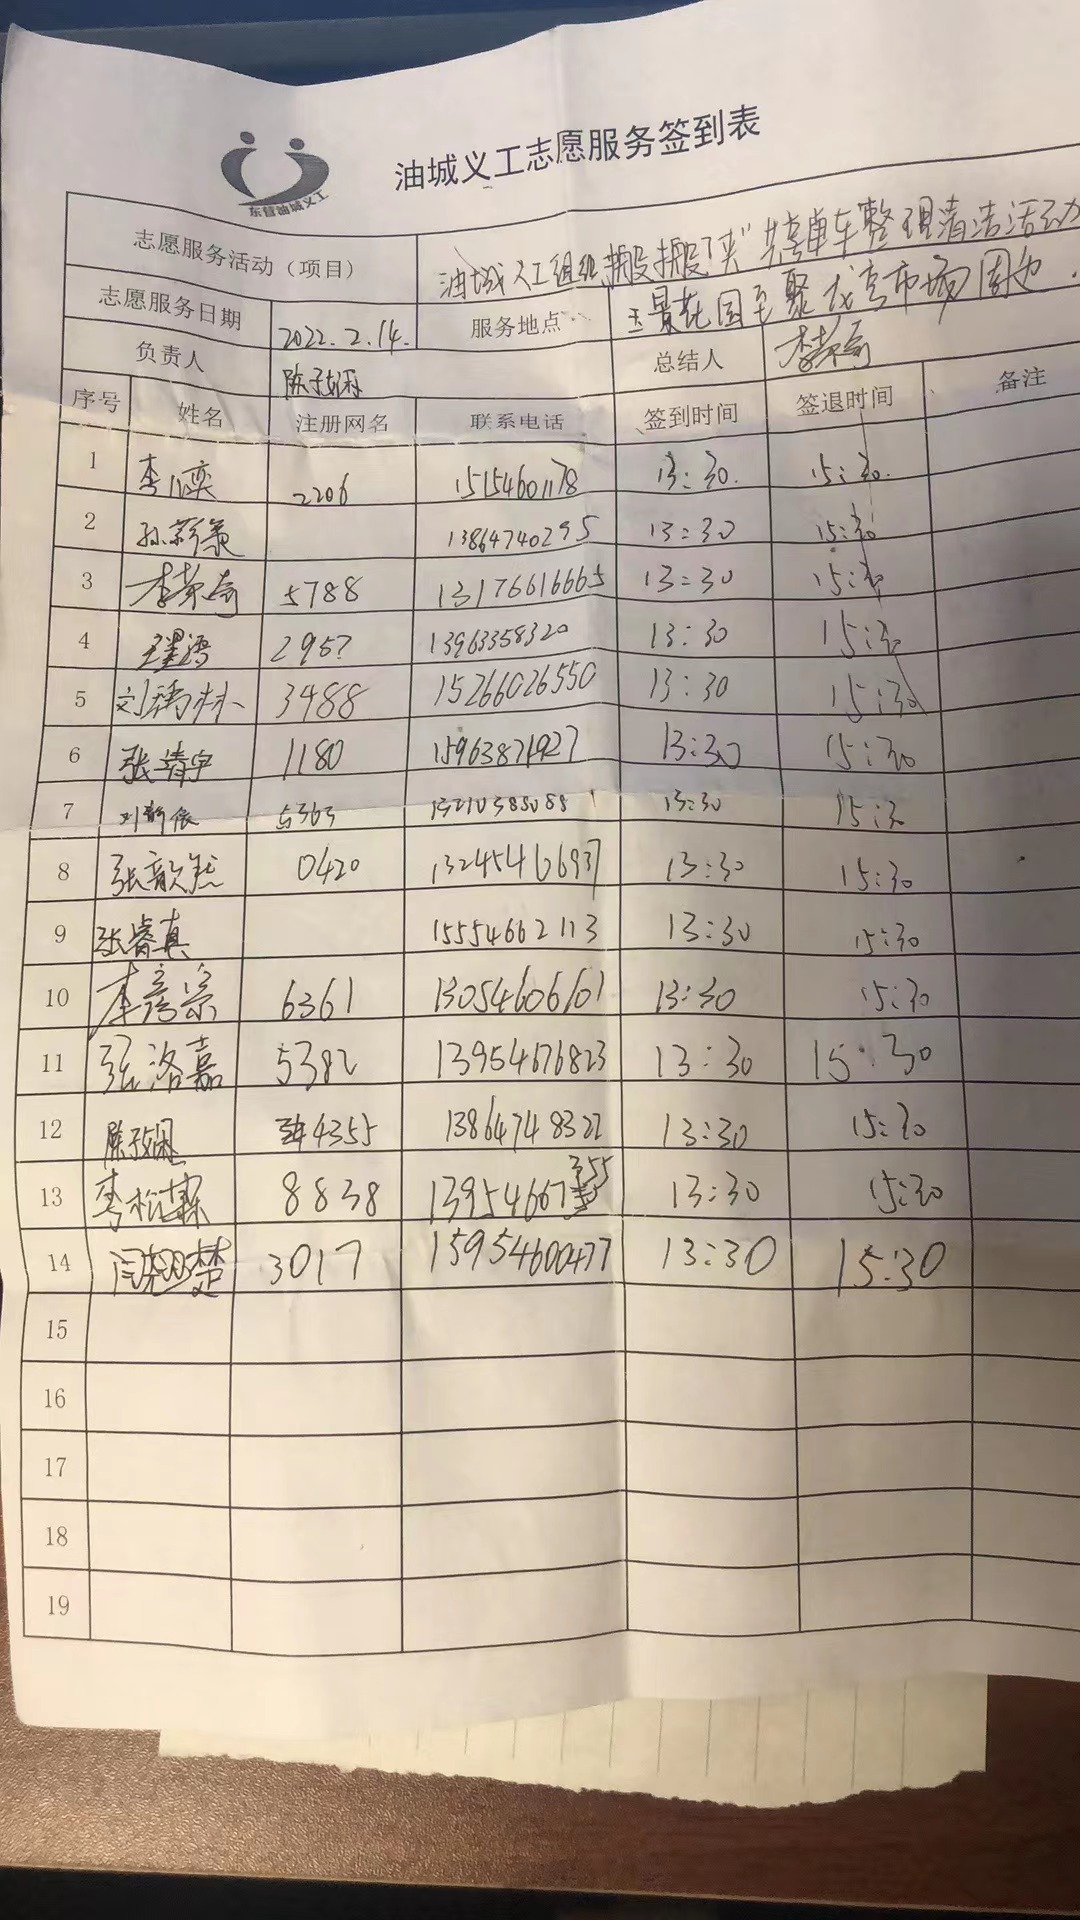 东营油城义工
油城义工志愿服务签到表
志愿服务活动（项目） 油城义工组织 共享单车整理清洁活动
志愿服务日期 2022.2.14. 服务地点 玉景花园至聚龙宫市场周边.
负责人 总结人
序号 姓名 注册网名 联系电话 签到时间 签退时间 备注
1 2206 15154601178 13:30. 15:30.
2 13864740295 13:30 15:30
3 5788 13176616665 13:30 15:30
4 2957 13963358320 13:30 15:30
5 3488 15266026550 13:30 15:30
6 张靖宇 1180 15963871927 13:30 15:30
7 刘静依 5363 13210385088 13:30 15:30
8 张歆然 0420 13245466937 13:30 15:30
9 张睿真 15554662113 13:30 15:30
10 6361 13054606101 13:30 15:30
11 张洛嘉 5382 13954676823 13:30 15:30
12 4355 13864748322 13:30 15:30
13 8838 13954667355 13:30 15:30
14 3017 15954600477 13:30 15:30
15
16
17
18
19